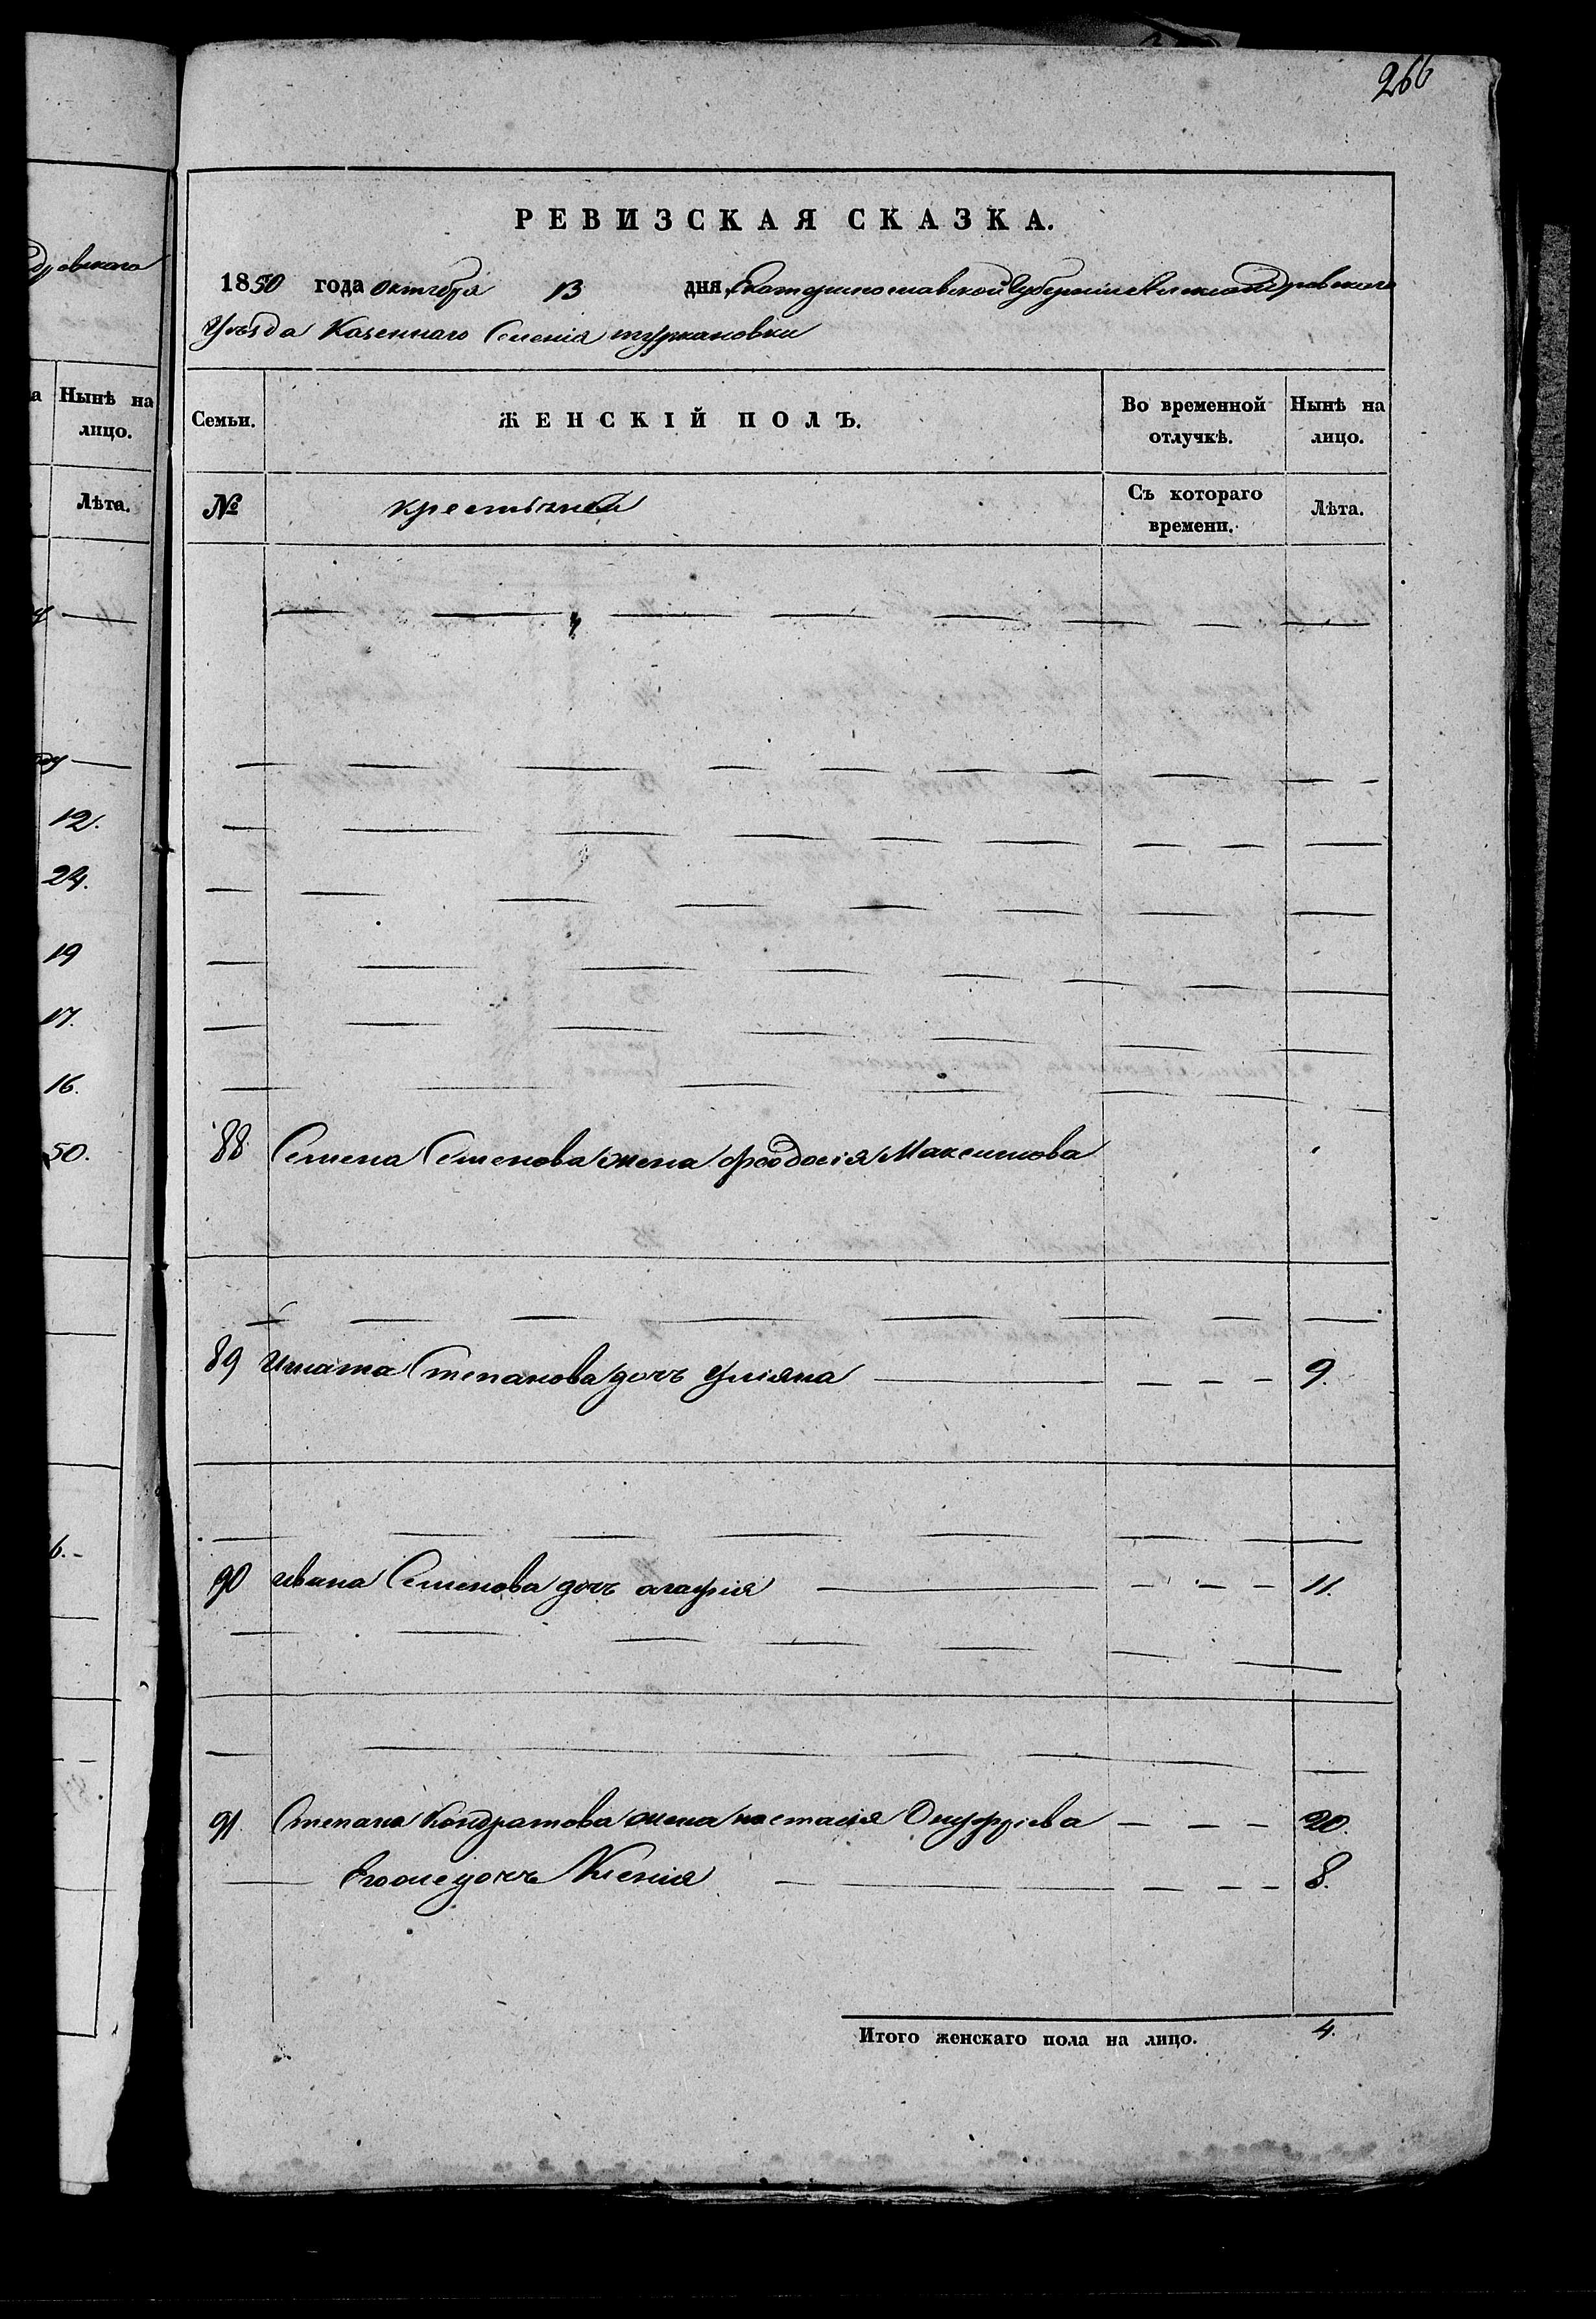 266
РЕВИЗСКАЯ СКАЗКА.
1850 года октября 13 дня, Екатеринославской Губерніи Александровского
Уезда Казенного Селенія туркановки
Семьи. ЖЕНСКІЙ ПОЛЪ. Во временной отлучкѣ. Нынѣ на лицо.
№ крестьянъ Съ котораго времени. Лѣта.
88 Семена Семенова жена феодосія Максимова
89 Игната Степанова дочь Уліяна 9.
90 ивана Семенова дочь агафія 11.
91 Степана Кондратова жена настасія Онуфріева 20.
Егоже дочь Ксенія 8.
Итого женскаго пола на лицо. 4.
дровского
а Нынѣ на
лицо.
Лѣта.
12.
24.
19
17.
16.
50.
6.